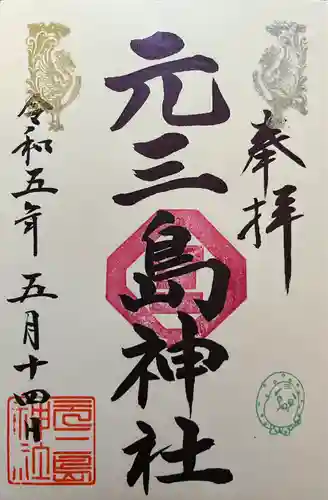 奉拝
元三島神社
令和五年 五月十四日
元三島
神社